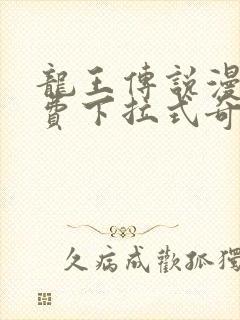 龍王傳說漫
費下拉式奇
久病成歡孤獨